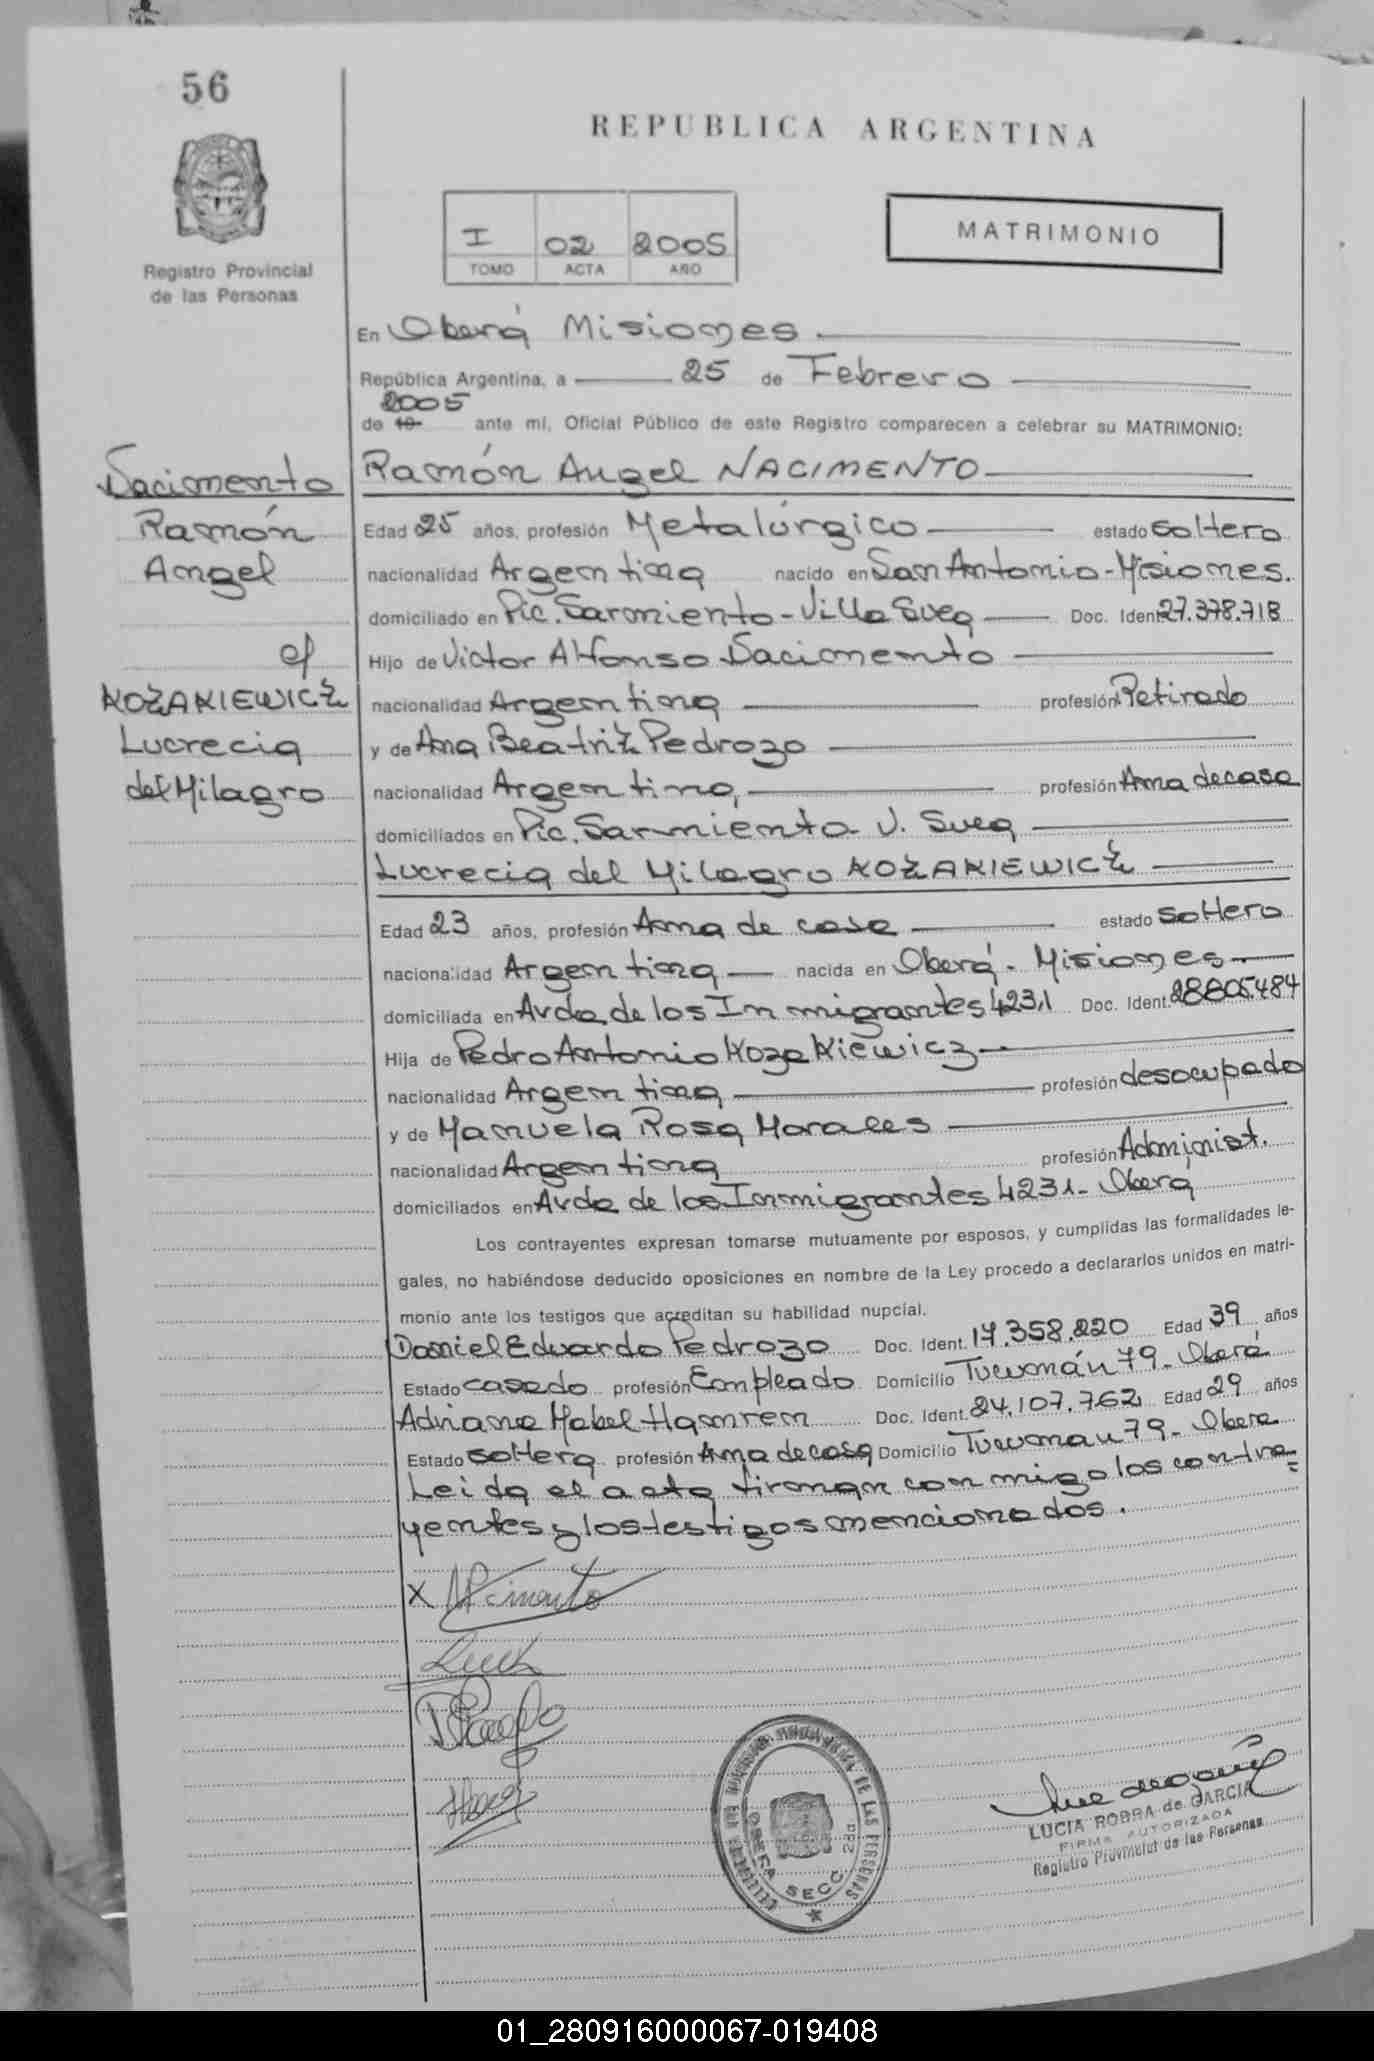 56
REPUBLICA ARGENTINA
I 02 2005
TOMO ACTA AÑO
MATRIMONIO
Registro Provincial
de las Personas
En Oberá Misiones
República Argentina, a 25 de Febrero
2005
de 19 ante mí, Oficial Público de este Registro comparecen a celebrar su MATRIMONIO:
Nacimento
Ramón
Angel
c/
KOZAKIEWICZ
Lucrecia
del Milagro
Ramón Angel NACIMENTO
Edad 25 años, profesión Metalúrgico estado soltero
nacionalidad Argentina nacido en San Antonio-Misiones.
domiciliado en Pic. Sarmiento-Villa Svea Doc. Ident 27.378.718
Hijo de Victor Alfonso Nacimento
nacionalidad Argentina profesión Retirado
y de Ana Beatriz Pedrozo
nacionalidad Argentina, profesión Ama de casa
domiciliados en Pic. Sarmiento V. Svea
Lucrecia del Milagro KOZAKIEWICZ
Edad 23 años, profesión Ama de casa estado soltero
nacionalidad Argentina nacida en Oberá - Misiones
domiciliada en Avda de los Inmigrantes 4231 Doc. Ident. 28805484
Hija de Pedro Antonio Kozakiewicz
nacionalidad Argentina profesión desocupado
y de Manuela Rosa Morales
nacionalidad Argentina profesión Administ.
domiciliados en Avda de los Inmigrantes 4231- Oberá
Los contrayentes expresan tomarse mutuamente por esposos, y cumplidas las formalidades le-
gales, no habiéndose deducido oposiciones en nombre de la Ley procedo a declararlos unidos en matri-
monio ante los testigos que acreditan su habilidad nupcial.
Daniel Eduardo Pedrozo Doc. Ident. 17.358.220 Edad 39 años
Estado casado profesión Empleado Domicilio Tucumán 79- Oberá
Adriana Mabel Hamrem Doc. Ident. 24.107.762 Edad 29 años
Estado soltera profesión Ama de casa Domicilio Tucuman 79- Obera
Leida el acta firman con migo los contra=
yentes y los testigos mencionados.
X
OBERA SECC. 2da
LUCIA ROBRA de GARCIA
FIRMA AUTORIZADA
Registro Provincial de las Personas
01_280916000067-019408